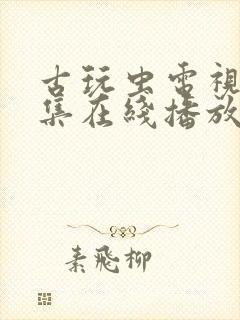 古玩虫電視
集在綫播放
素飛柳